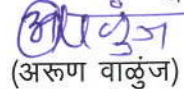 (अरूण वाळुंज)